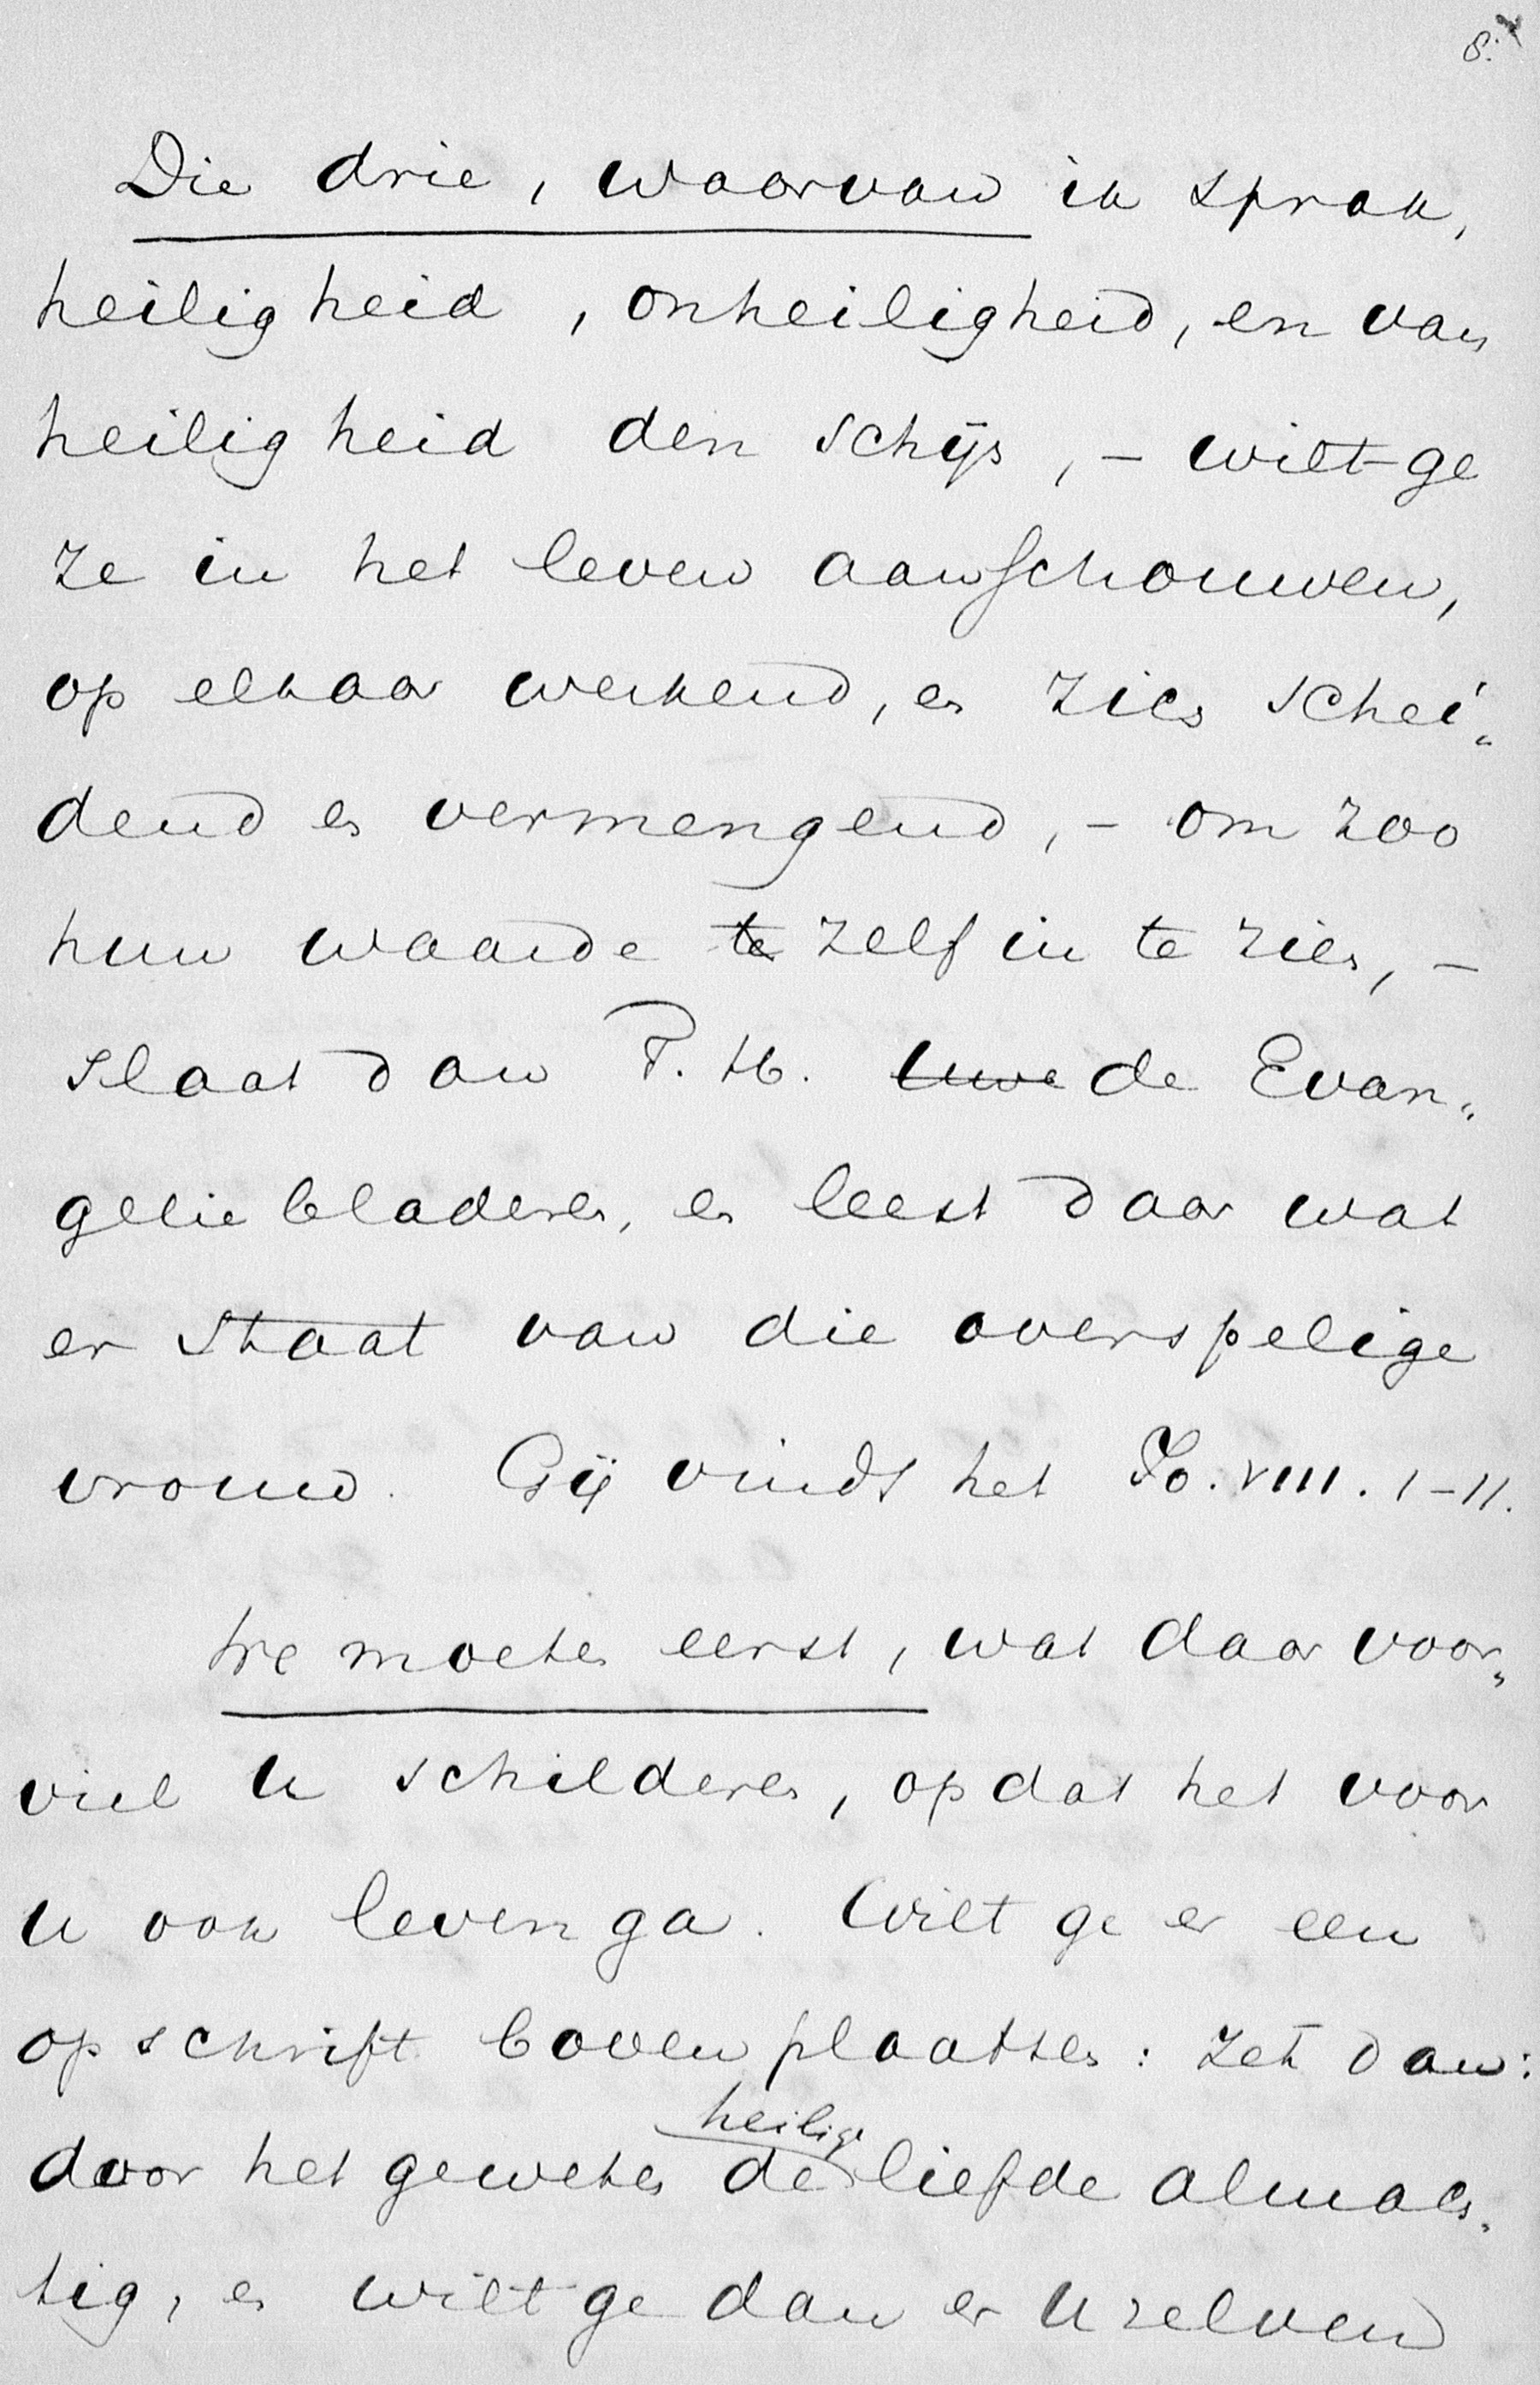 8.
Die drie, waarvan ik sprak,
heiligheid, onheiligheid, en van
heiligheid den schijn, – wilt ge
ze in het leven aanschouwen,
op elkaar werkend, en zich schei„
dend en vermengend, – om zoo
hun waarde te zelf in te zien, –
slaat dan T. H. Uwe de Evan„
gelie bladeren, en leest daar wat
er staat van die overspelige
vrouw. Gij vindt het Jo. VIII. 1–11.
We moeten eerst, wat daar voor„
viel U schilderen, opdat het voor
U ook leven ga. Wilt ge er een
opschrift boven plaatsen: zet dan:
heilige
door het geweten de liefde almach„
tig, en wilt ge dan er Uzelven